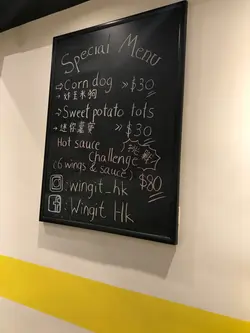 Special Menu
→Corn dog »$30
Sweet potato tots
→迷你薯寶 »$30
Hot sauce
Challenge 挑戰
(6 wings & sauce) $80
:wingit_hk
:Wingit Hk